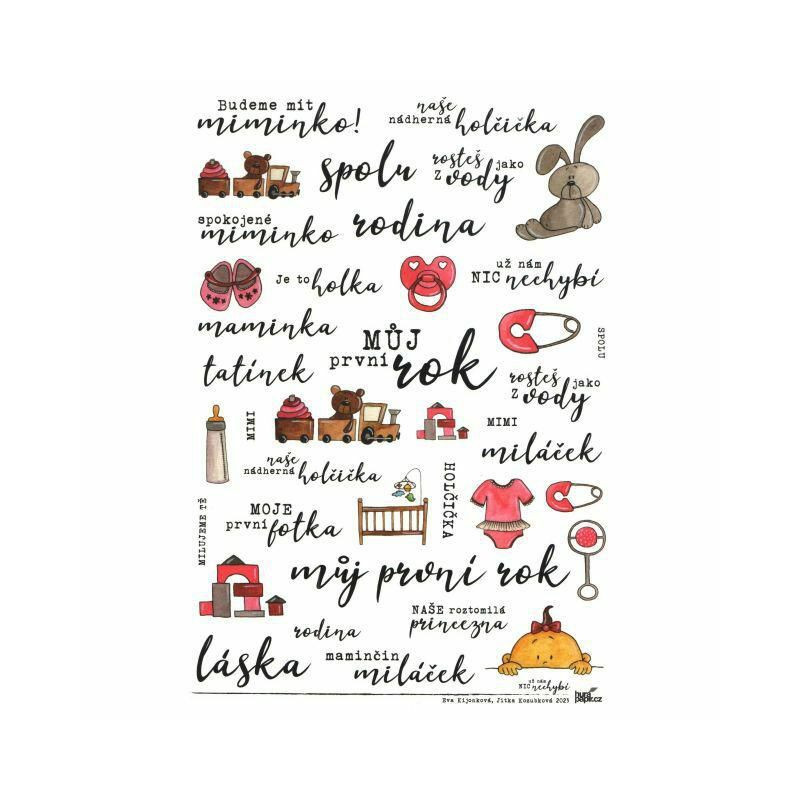 Budeme mít
miminko!
naše
nádherná holčička
spolu
rosteš jako
z vody
spokojené
miminko
rodina
Je to holka
už nám
NIC nechybí
maminka
SPOLU
MŮJ
první rok
tatínek
rosteš jako
z vody
MIMI
MIMI
miláček
naše
nádherná holčička
HOLČIČKA
MILUJEME TĚ
MOJE
první fotka
můj první rok
NAŠE roztomilá
princezna
rodina
láska
maminčin
miláček
už nám
NIC nechybí
Eva Kijonková, Jitka Kozubková 2023
hura
papir.cz